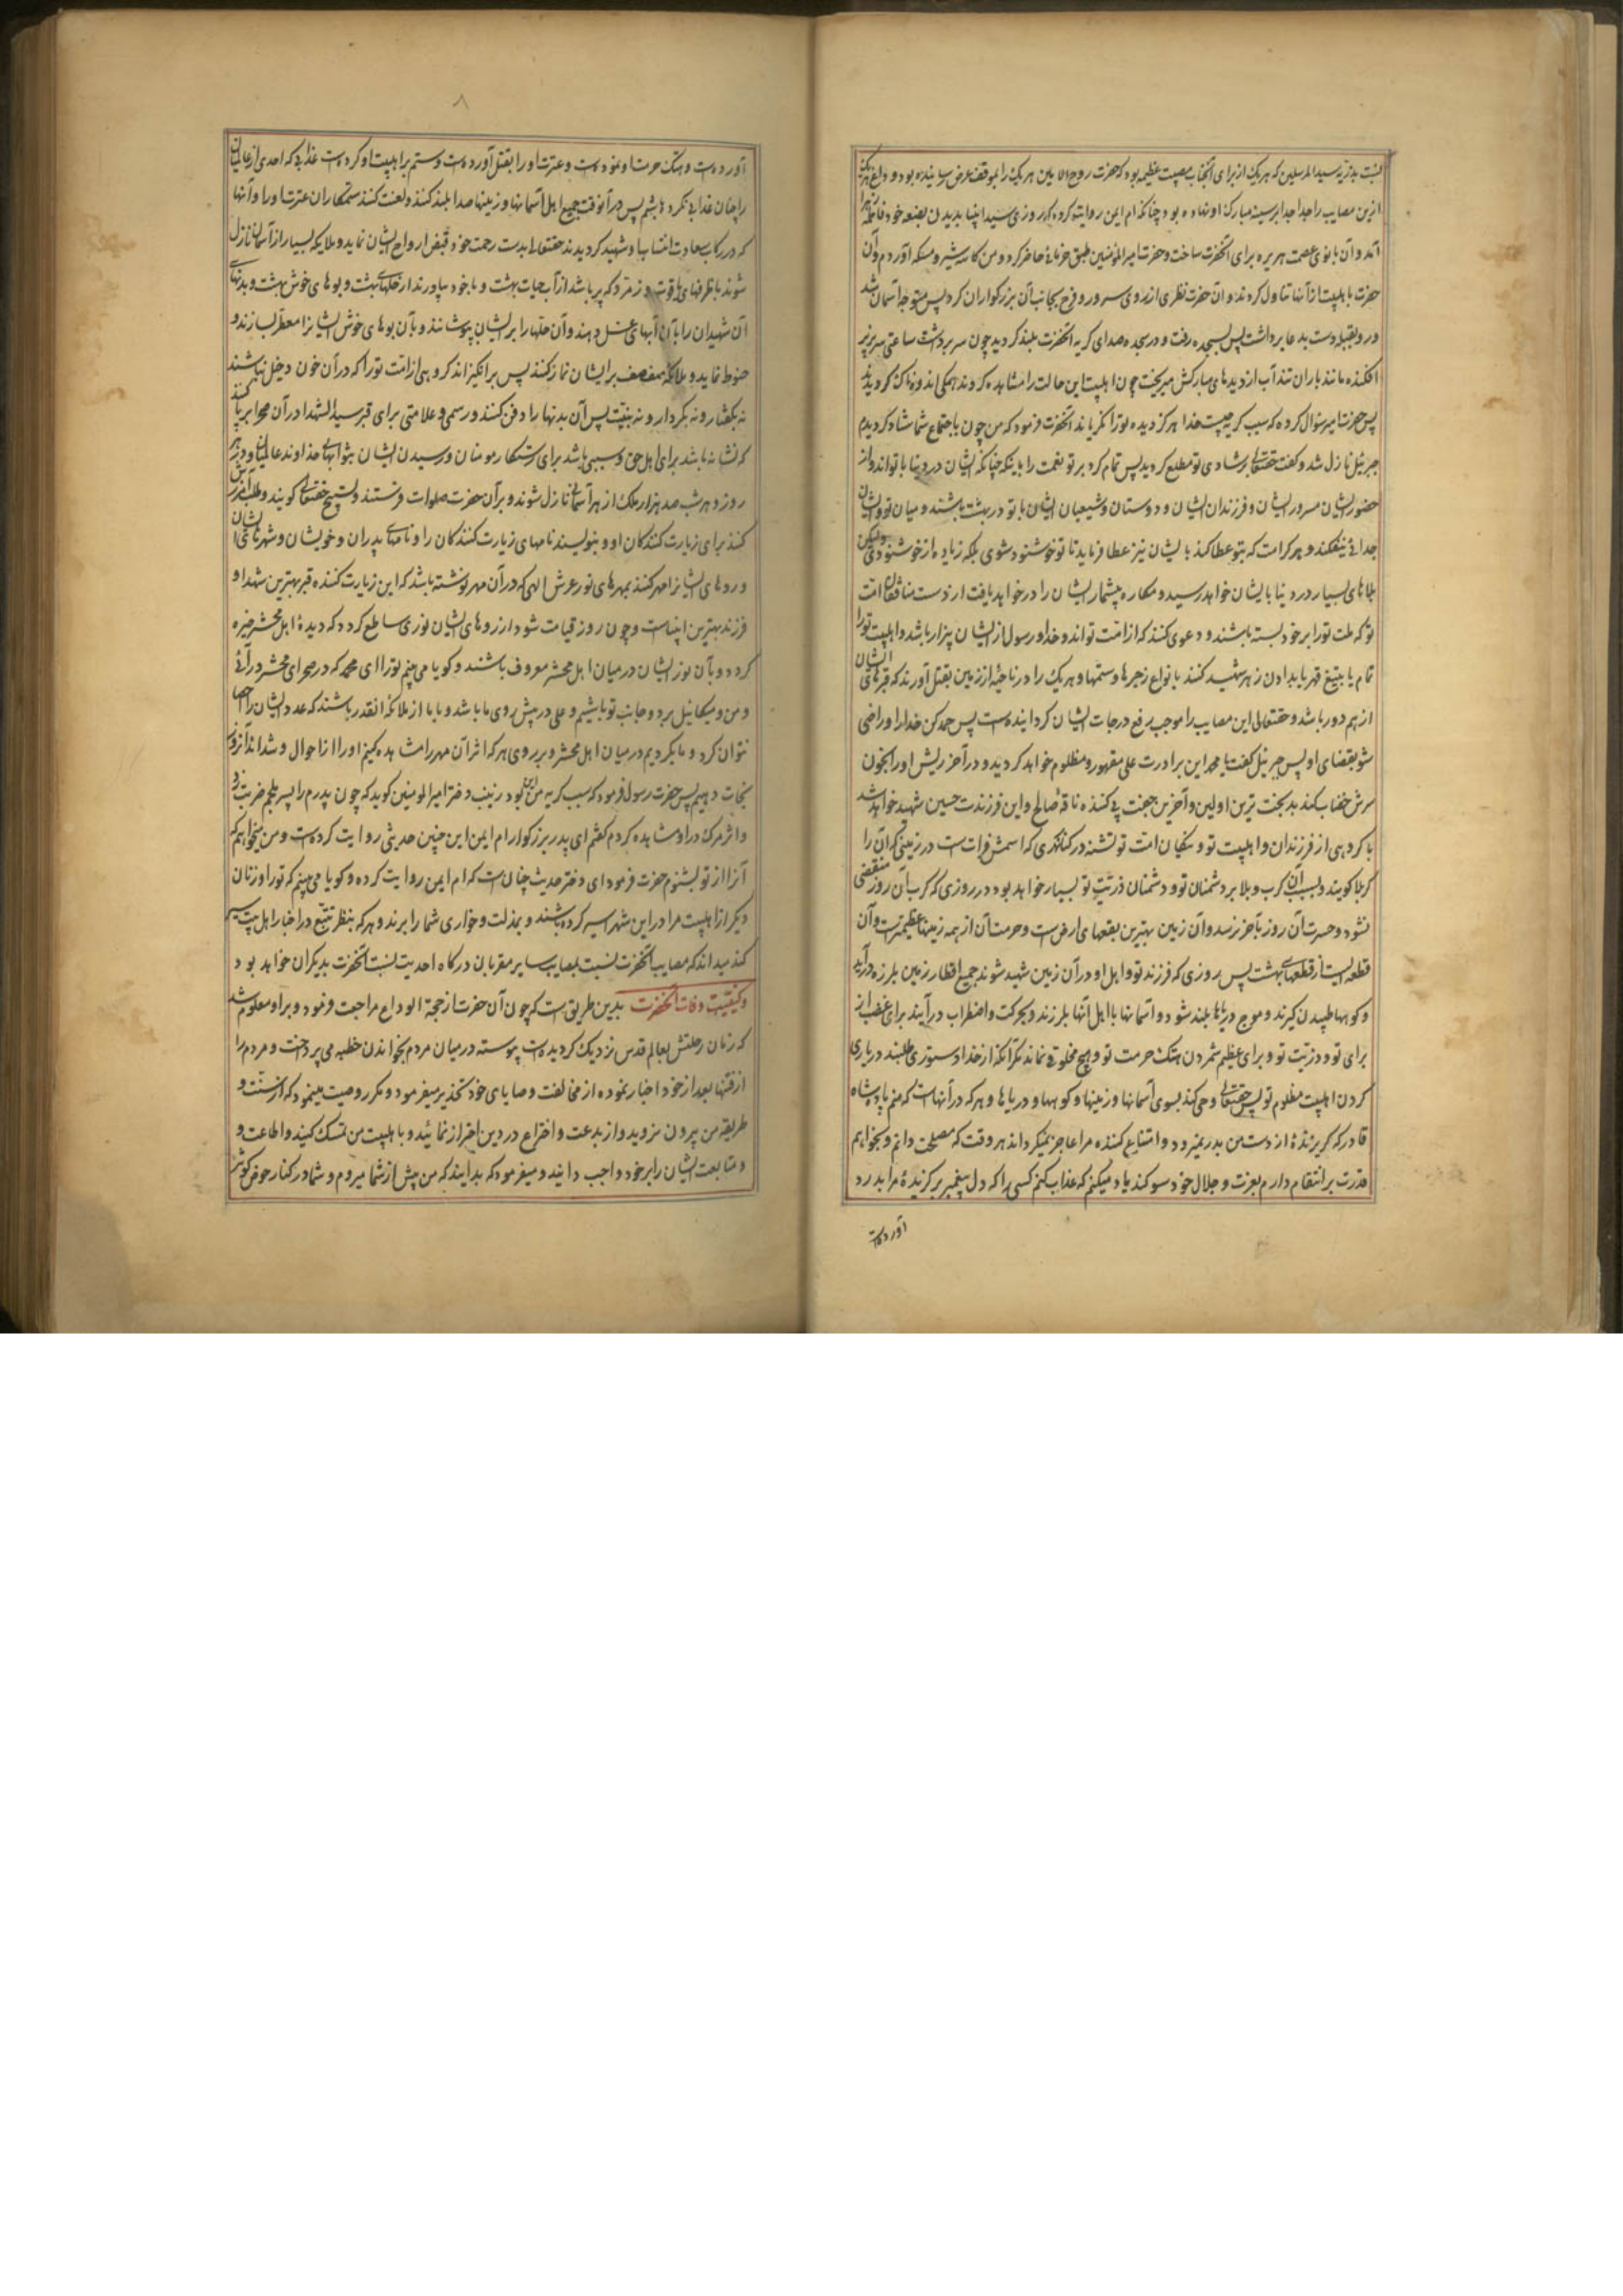 نسبت بذریه سیدالمرسلین که هر یک از برای آنجناب مصیبت عظیمه بود که حضرت روح الامین هر یک را بموقف عرض رسانیده بود و داغ هر یک
ازین مصایب را جدا جدا بر سینه مبارک او نهاده بود چنانکه ام ایمن روایت کرده که روزی سید انبیا بدیدن بضعه خود فاطمه زهرا
آمد و آن بانوی عصمت حریره برای آنحضرت ساخت و حضرت امیرالمؤمنین طبق خرمائی حاضر کرد و من کاسه شیر و مسکه آوردم و آن
حضرت با اهلبیت از آنها تناول کردند و آن حضرت نظری از روی سرور و فرح بجانب آن بزرگواران کرد پس متوجه آسمان شد
و رو بقبله دست بدعا برداشت پس بسجده رفت و در سجده صدای گریه آنحضرت بلند گردید چون سر برداشت ساعتی سر بزیر
افکنده مانند باران تند آب از دیدهای مبارکش میریخت چون اهلبیت این حالت را مشاهده کردند همگی اندوهناک گردیدند
پس حضرت امیر سؤال کرده که سبب گریه چیست خدا هرگز دیده تو را نگریاند آنحضرت فرمود که من چون باجتماع شما شاد گردیدم
جبرئیل نازل شد و گفت حقتعالی بر شادی تو مطلع گردید پس تمام کرد بر تو نعمت را باینکه چنانکه ایشان در دنیا با تواند و از
حضور ایشان مسرور ایشان و فرزندان ایشان و دوستان و شیعیان ایشان با تو در بهشت باشند و میان تو و ایشان
جدائی نیفکند و هر کرامت که بتو عطا کند بایشان نیز عطا فرماید تا تو خوشنود شوی بلکه زیاده از خوشنودی ولیکن
بلاهای بسیار در دنیا بایشان خواهد رسید و مکاره بیشمار ایشان را در خواهد یافت از دست منافقان امت
تو که ملت تو را بر خود بسته باشند و دعوی کنند که از امت تواند و خدا و رسول از ایشان بیزار باشد و اهلبیت تو را
تمام یا بتیغ قهر یا بدادن زهر شهید کنند بانواع زجرها و ستمها و هر یک را در ناحیهٔ از زمین بقتل آورند که قبرهای ایشان
از هم دور باشد و حقتعالی این مصایب را موجب رفع درجات ایشان گردانیده است پس حمد کن خدا را و راضی
شو بقضای او پس جبرئیل گفت یا محمد این برادرت علی مقهور و مظلوم خواهد گردید و در آخر ریش او را بخون
سرش خضاب کند بدبخت ترین اولین و آخرین جفت پی کننده ناقهٔ صالح و این فرزندت حسین شهید خواهد شد
با گروهی از فرزندان و اهلبیت تو و نیکان امت تو تشنه در کنار نهری که اسمش فرات است در زمینی که آن را
کربلا گویند و بسبب آن کرب و بلا بر دشمنان تو و دشمنان ذریّت تو بسیار خواهد بود در روزی که کرب آن روز منقضی
نشود و حسرت آن روز بآخر نرسد و آن زمین بهترین بقعهای ارض است و حرمت آن از همه زمینها عظیمتر است و آن
قطعه ایست از قطعهای بهشت پس روزی که فرزند تو و اهل او در آن زمین شهید شوند جمیع اقطار زمین بلرزه درآید
و کوهها طپیدن گیرند و موج دریاها بلند شود و آسمانها با اهل آنها بلرزند و بحرکت و اضطراب درآیند برای غضب از
برای تو و ذریّت تو و برای عظیم شمردن هتک حرمت تو و هیچ مخلوقی نماند مگر آنکه از خدا دستوری طلبند در یاری
کردن اهلبیت مظلوم تو پس حقتعالی وحی کند بسوی آسمانها و زمینها و کوهها و دریاها و هر که در آنهاست که منم پادشاه
قادر که گریزندهٔ از دست من بدر نمیرود و امتناع کننده مرا عاجز نمیگرداند هر وقت که مصلحت دانم و بخواهم
قدرت بر انتقام دارم بعزت و جلال خود سوگند یاد میکنم که عذاب کنم کسی را که دل پیغمبر برگزیدهٔ مرا بدرد
آورده است
۸
آورده است و هتک حرمت او نموده است و عترت او را بقتل آورده است و ستم بر اهلبیت او کرده است عذابی که احدی از عالمیان
را چنان عذابی نکرده باشم پس در آنوقت جمیع اهل آسمانها و زمینها صدا بلند کنند و لعنت کنند ستمکاران عترت او را و آنها
که در رکاب سعادت انتساب او شهید گردیدند حقتعالی بدست رحمت خود قبض ارواح ایشان نماید و ملایکه بسیار از آسمان نازل
شوند با ظرفهای یاقوت و زمرد که پر باشد از آب حیات بهشت و با خود بیاورند از حلهای بهشت و بوهای خوش بهشت و بدنهای
آن شهیدان را بآن آبهای غسل دهند و آن حلها را بر ایشان بپوشانند و بآن بوهای خوش ایشانرا معطر سازند و
حنوط نمایند و ملائکه صف صف بر ایشان نماز کنند پس برانگیزاند گروهی از امت تو را که در آن خون دخیل نباشند
نه بگفتار و نه بکردار و نه بنیّت پس آن بدنها را دفن کنند و رسم و علامتی برای قبر سیدالشهدا در آن صحرا برپا کنند
که نشانه باشد برای اهل حق و سببی باشد برای رستگار مومنان و رسیدن ایشان بثوابهای خداوند عالمیان و در هر
روز و هر شب صد هزار ملک از هر آسمانی نازل شوند و بر آن حضرت صلوات فرستند و تسبیح حقتعالی گویند و طلب آمرزش
کنند برای زیارت کنندگان او و بنویسند نامهای زیارت کنندگان را و نامهای پدران و خویشان و شهرهای ایشان
و روهای ایشانرا مهر کنند بمهرهای نور عرش الهی که در آن مهر نوشته باشد که این زیارت کننده قبر بهترین شهدا و
فرزند بهترین انبیاست و چون روز قیامت شود از روهای ایشان نوری ساطع گردد که دیدهٔ اهل محشر خیره
گردد و بآن نور ایشان در میان اهل محشر معروف باشند و گویا می بینم تو را ای محمد که در صحرای محشر درآئی
و من و میکائیل بر دو جانب تو باشیم و علی در پیش روی ما باشد و با ما از ملائکه آنقدر باشند که عدد ایشان را احصا
نتوان کرد و ما بگردیم در میان اهل محشر و بر روی هر که اثر آن مهر را مشاهده کنیم او را از احوال و شداید آنروز
نجات دهیم پس حضرت رسول فرمود که سبب گریه من این بود زینب دختر امیرالمومنین گوید که چون پدرم را پسر ملجم ضربت زد
و اثر مرگ در او مشاهده کردم گفتم ای پدر بزرگوار ام ایمن این چنین حدیثی روایت کرده است و من میخواهم که
آنرا از تو بشنوم حضرت فرمود ای دختر حدیث چنان است که ام ایمن روایت کرده و گویا می بینم که تو را و زنان
دیگر از اهلبیت مرا در این شهر اسیر کرده باشند و بمذلت و خواری شما را برند و هر که بنظر تتبع در اخبار اهل بیت سیر
کند میداند که مصایب آنحضرت نسبت بمصایب سایر مقربان درگاه احدیت نسبت آنحضرت بدیگران خواهد بود
و کیفیت وفات آنحضرت بدین طریق است که چون آن حضرت از حجة الوداع مراجعت فرمود و بر او معلوم شد
که زمان رحلتش بعالم قدس نزدیک گردیده است پیوسته در میان مردم بخواندن خطبه می پرداخت و مردم را
از فتنهای بعد از خود اخبار نموده از مخالفت وصایای خود تحذیر میفرمود و مکرر وصیت مینمود که از سنّت و
طریقه من بیرون مروید و از بدعت و اختراع در دین احتراز نمائید و باهلبیت من تمسک کنید و اطاعت و
و متابعت ایشان را بر خود واجب دانید و میفرمود که بدانید که من پیش از شما میروم و شما در کنار حوض کوثر